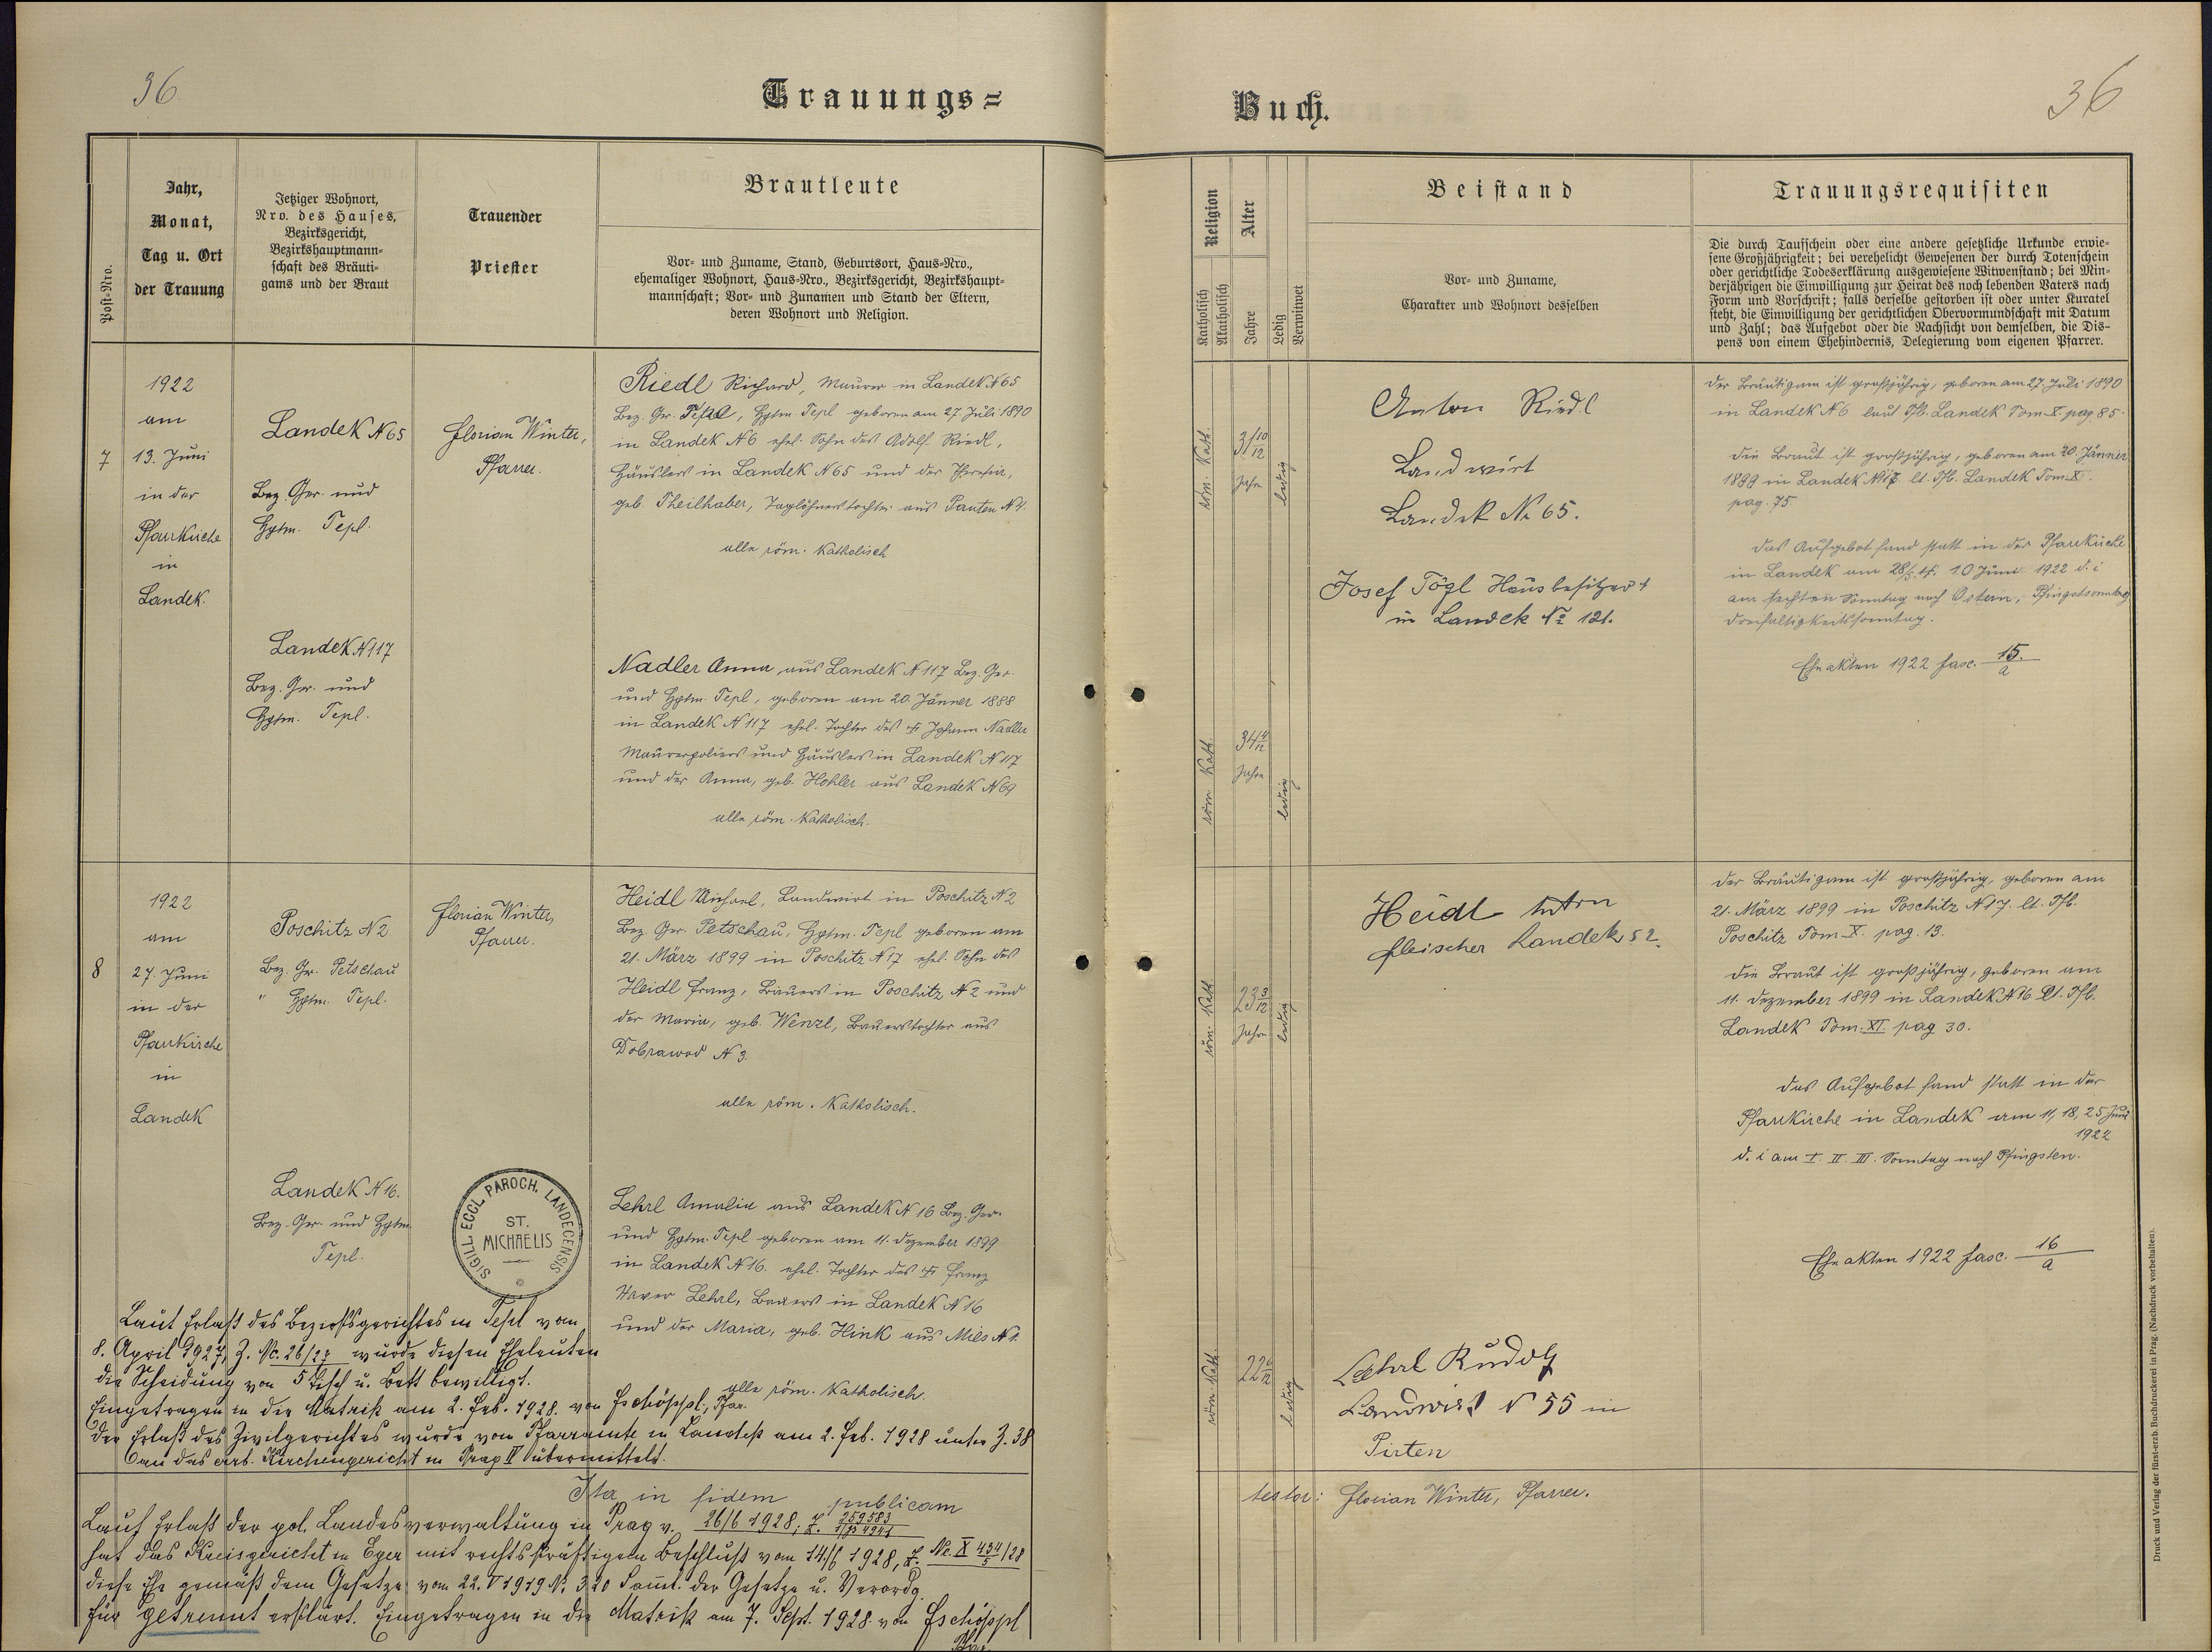 36
Trauungs=
Post-Nro.
Jahr,
Monat,
Tag u. Ort
der Trauung
Jetziger Wohnort,
Nro. des Hauses,
Bezirksgericht,
Bezirkshauptmann-
schaft des Bräuti-
gams und der Braut
Trauender
Priester
Brautleute
Vor- und Zuname, Stand, Geburtsort, Haus-Nro.,
ehemaliger Wohnort, Haus-Nro., Bezirksgericht, Bezirkshaupt-
mannschaft; Vor- und Zunamen und Stand der Eltern,
deren Wohnort und Religion.
7
1922
am
13. Juni
in der
Pfarrkirche
in
Landek.
Landek N 65
Bez. Ger. und
Hptm. Tepl.
Landek N 117
Bez. Ger. und
Hptm. Tepl.
Florian Winter,
Pfarrer.
Riedl Richard, Maurer in Landek N 65
Bez. Ger. Tepl, Hptm. Tepl geboren am 27. Juli 1890
in Landek N 6 ehel. Sohn des Adolf Riedl,
Häuslers in Landek N 65 und der Theresia,
geb. Theilhaber, Taglöhnerstochter aus Pauten N 4.
alle röm. Katholisch
Nadler Anna, aus Landek N 117 Bez. Ger.
und Hptm. Tepl, geboren am 20. Jänner 1888
in Landek N 117 ehel. Tochter des † Johann Nadler
Maurerpoliers und Häuslers in Landek N 117
und der Anna, geb. Hohler aus Landek N 69
alle röm. Katholisch.
8
1922
am
27. Juni
in der
Pfarrkirche
in
Landek
Poschitz N 2
Bez. Ger. Petschau
" Hptm. Tepl.
Landek N 16.
Bez. Ger. und Hptm.
Tepl.
Florian Winter,
Pfarrer.
SIGILL. ECCL. PAROCH. LANDECENSIS
ST.
MICHAELIS
Heidl Michael, Landwirt in Poschitz N 2
Bez. Ger. Petschau, Hptm. Tepl geboren am
21. März 1899 in Poschitz N 17 ehel. Sohn des
Heidl Franz, Bauers in Poschitz N 2 und
der Maria, geb. Wenzl, Bauerstochter aus
Dobrawod N 3.
alle röm. Katholisch.
Lehrl Amalia aus Landek N 16 Bez. Ger.
und Hptm. Tepl geboren am 11. Dezember 1899
in Landek N 16. ehel. Tochter des † Franz
Xaver Lehrl, Bauers in Landek N 16
und der Maria, geb. Hink aus Mies N 1.
alle röm. Katholisch.
Laut Erlaß des Bezirksgerichtes in Tepl vom
8. April 1927, Z. Nc. 26/27 wurde diesen Eheleuten
die Scheidung von Tisch u. Bett bewilligt.
Eingetragen in die Matrik am 2. Feb. 1928. von Fschöppl, Pfar.
Der Erlaß des Zivilgerichtes wurde vom Pfarramte in Landek am 2. Feb. 1928 unter Z. 38
an das erzb. Kirchengericht in Prag IV übermittelt.
Ita in fidem publicam
Laut Erlaß der pol. Landesverwaltung in Prag v. 26/6 1928, Z. 259583
hat das Kreisgericht in Eger mit rechtskräftigem Beschluß vom 14/6 1928, Z. Nc. X 434/28
5
diese Ehe gemäß dem Gesetze vom 22. V 1919 N. 320 Samml. der Gesetze u. Verordg.
für getrennt erklärt. Eingetragen in die Matrik am 7. Sept. 1928. von Fschöppl
Pfar.
Buch.
36
Religion
Katholisch
Akatholisch
Alter
Jahre
Ledig
Verwitwet
Beistand
Vor- und Zuname,
Charakter und Wohnort desselben
Trauungsrequisiten
Die durch Taufschein oder eine andere gesetzliche Urkunde erwie-
sene Großjährigkeit; bei verehelicht Gewesenen der durch Totenschein
oder gerichtliche Todeserklärung ausgewiesene Witwenstand; bei Min-
derjährigen die Einwilligung zur Heirat des noch lebenden Vaters nach
Form und Vorschrift; falls derselbe gestorben ist oder unter Kuratel
steht, die Einwilligung der gerichtlichen Obervormundschaft mit Datum
und Zahl; das Aufgebot oder die Nachsicht von demselben, die Dis-
pens von einem Ehehindernis, Delegierung vom eigenen Pfarrer.
röm. Kath.
31 10/12
Jahre
ledig
Anton Riedl
Landwirt
Landek Nr 65.
Josef Tögl Hausbesitzer
in Landek Nº 121.
röm. Kath.
34 4/12
Jahre
ledig
Der Bräutigam ist großjährig, geboren am 27. Juli 1890
in Landek N 6 laut Tfb. Landek Tom. X. pag. 85.
Die Braut ist großjährig, geboren am 20. Jänner
1888 in Landek N 117 lt. Tfb. Landek Tom. X.
pag. 75
Das Aufgebot fand statt in der Pfarrkirche
in Landek am 28/5. 4. 10 Juni 1922 d. i
am sechsten Sonntag nach Ostern, Pfingstsonntag
Dreifaltigkeitssonntag.
Eheakten 1922 fasc. 15./a
röm. Kath
23 3/12
Jahre
ledig
Heidl Anton
Fleischer Landek 52.
röm. Kath
22 6/12
ledig
Lehrl Rudolf
Landwirt N 55 in
Pirten
Der Bräutigam ist großjährig, geboren am
21. März 1899 in Poschitz N 17. lt. Tfb.
Poschitz Tom. X. pag. 13.
Die Braut ist großjährig, geboren am
11. Dezember 1899 in Landek N 16 lt. Tfb.
Landek Tom. XI. pag 30.
Das Aufgebot fand statt in der
Pfarrkirche in Landek am 11, 18, 25 Juni
1922
d. i am I. II. III. Sonntag nach Pfingsten.
Eheakten 1922 fasc. 16/a
testor: Florian Winter, Pfarrer.
Druck und Verlag der fürst-erzb. Buchdruckerei in Prag. (Nachdruck vorbehalten).